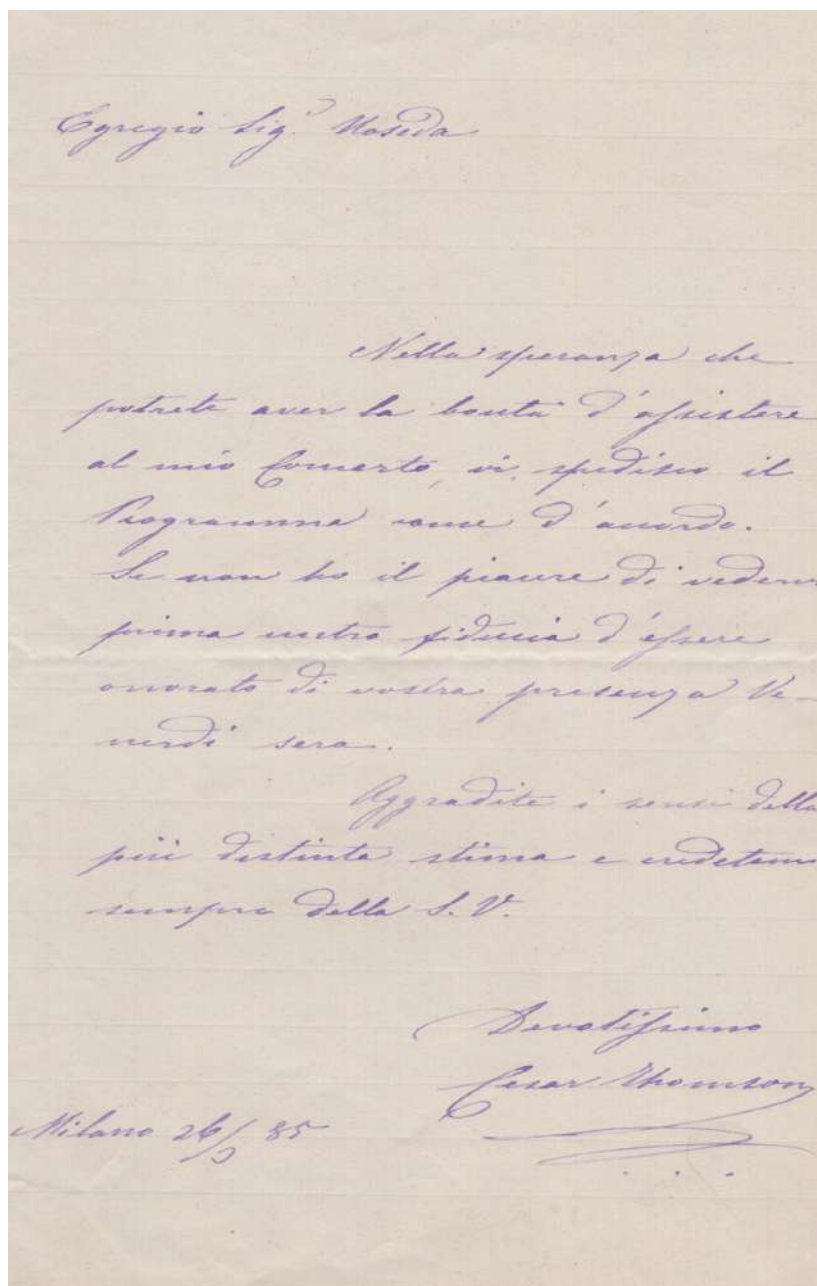 Egregio Sig.r Maseda
Nella speranza che
potrete aver la bontà d'assistere
al mio Concerto, vi spedisco il
Programma come d'accordo.
Se non ho il piacere di vedervi
prima nutro fiducia d'essere
onorato di vostra presenza Ve-
nerdì sera.
Aggradite i sensi della
più distinta stima e credetemi
sempre della S. V.
Devotissimo
Cesar Thomson
Milano 26/3 85